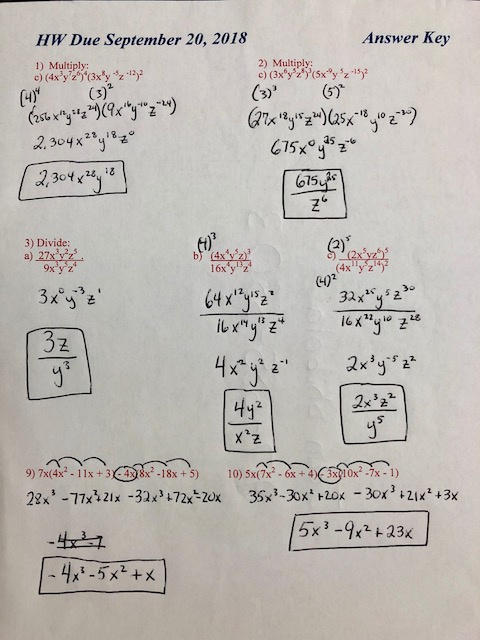 HW Due September 20, 2018 Answer Key
1) Multiply:
c) (4x³y⁷z⁶)⁴(3x⁸y⁻⁵z⁻¹²)²
(4)⁴ (3)²
(256x¹²y²⁸z²⁴)(9x¹⁶y⁻¹⁰z⁻²⁴)
2,304x²⁸y¹⁸z⁰
2,304x²⁸y¹⁸
2) Multiply:
c) (3x⁶y⁵z⁸)³(5x⁻⁹y⁵z⁻¹⁵)²
(3)³ (5)²
(27x¹⁸y¹⁵z²⁴)(25x⁻¹⁸y¹⁰z⁻³⁰)
675x⁰y²⁵z⁻⁶
675y²⁵
z⁶
3) Divide:
a) 27x³y²z⁵.
9x³y⁵z⁴
3x⁰y⁻³z¹
3z
y³
(4)³
b) (4x⁴y⁵z)³
16x¹⁴y¹³z⁴
64x¹²y¹⁵z³
16x¹⁴y¹³z⁴
4x⁻²y²z⁻¹
4y²
x²z
(2)⁵
c) (2x⁵yz⁶)⁵
(4x¹¹y⁵z¹⁴)²
(4)²
32x²⁵y⁵z³⁰
16x²²y¹⁰z²⁸
2x³y⁻⁵z²
2x³z²
y⁵
9) 7x(4x² - 11x + 3) - 4x(8x² -18x + 5)
28x³ -77x²+21x -32x³+72x²-20x
-4x³-7
-4x³-5x²+x
10) 5x(7x² - 6x + 4) - 3x(10x² -7x - 1)
35x³-30x²+20x -30x³+21x²+3x
5x³-9x²+23x